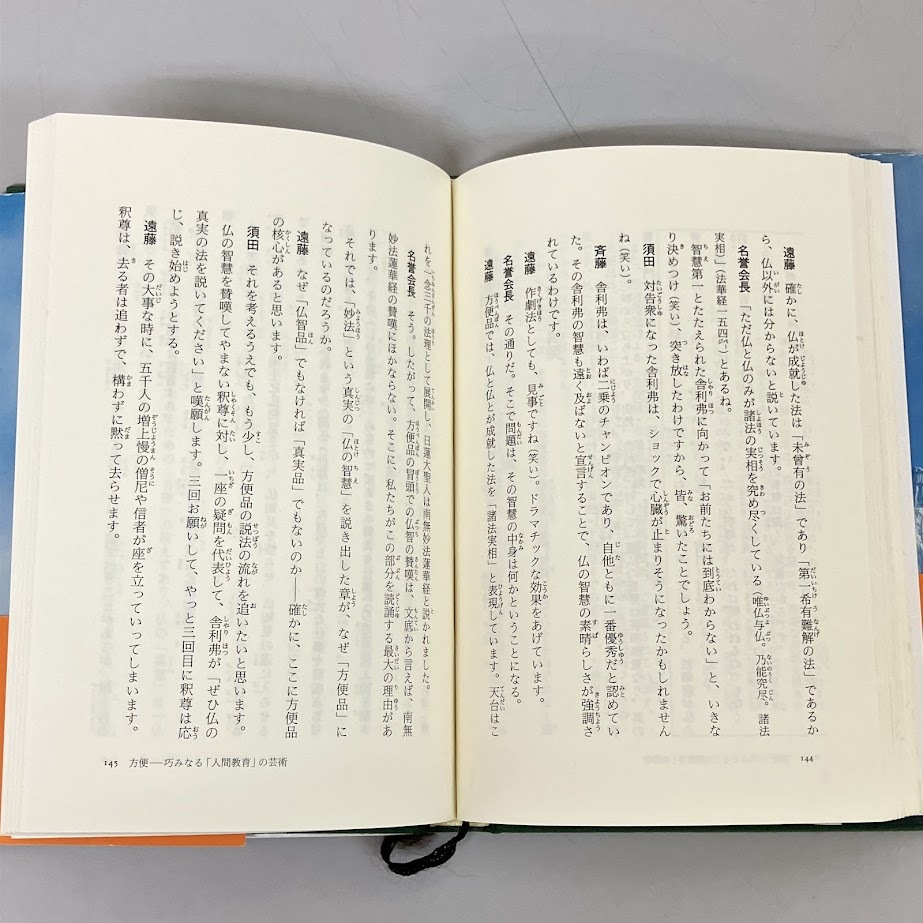 遠藤　確かに、仏が成就した法は「未曾有の法」であり「第一希有難解の法」であるか
ら、仏以外には分からないと説いています。
名誉会長　「ただ仏と仏のみが諸法の実相を究め尽くしている（唯仏与仏。乃能究尽。諸法
実相）」（法華経一五四㌻）とあるね。
智慧第一とたたえられた舎利弗に向かって「お前たちには到底わからない」と、いきな
り決めつけ（笑い）、突き放したわけですから、皆、驚いたことでしょう。
須田　対告衆になった舎利弗は、ショックで心臓が止まりそうになったかもしれません
ね（笑い）。
斉藤　舎利弗は、いわば二乗のチャンピオンであり、自他ともに一番優秀だと認めてい
た。その舎利弗の智慧も遠く及ばないと宣言することで、仏の智慧の素晴らしさが強調さ
れているわけです。
遠藤　作劇法としても、見事ですね（笑い）。ドラマチックな効果をあげています。
名誉会長　その通りだ。そこで問題は、その智慧の中身は何かということになる。
遠藤　方便品では、仏と仏とが成就した法を「諸法実相」と表現しています。天台はこ
144
れを一念三千の法理として展開し、日蓮大聖人は南無妙法蓮華経と説かれました。
名誉会長　そう。したがって、方便品の冒頭での仏智の賛嘆は、文底から言えば、南無
妙法蓮華経の賛嘆にほかならない。そこに、私たちがこの部分を読誦する最大の理由があ
ります。
それでは、「妙法」という真実の「仏の智慧」を説き出した章が、なぜ「方便品」に
なっているのだろうか。
遠藤　なぜ「仏智品」でもなければ「真実品」でもないのか――確かに、ここに方便品
の核心があると思います。
須田　それを考えるうえでも、もう少し、方便品の説法の流れを追いたいと思います。
仏の智慧を賛嘆してやまない釈尊に対し、一座の疑問を代表して、舎利弗が「ぜひ仏の
真実の法を説いてください」と嘆願します。三回お願いして、やっと三回目に釈尊は応
じ、説き始めようとする。
遠藤　その大事な時に、五千人の増上慢の僧尼や信者が座を立っていってしまいます。
釈尊は、去る者は追わずで、構わずに黙って去らせます。
145　方便――巧みなる「人間教育」の芸術